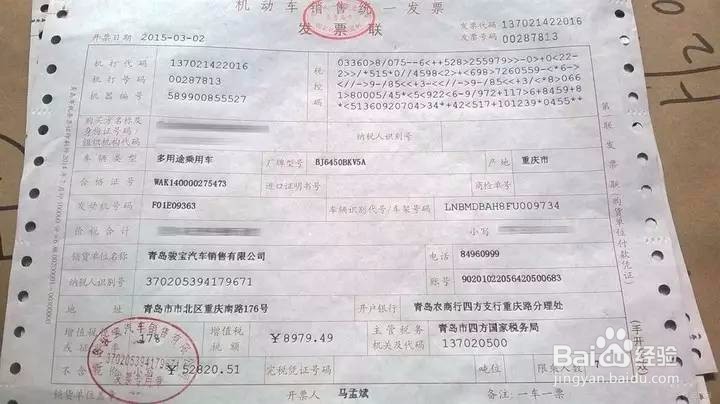 机动车销售统一发票
发票联
开票日期 2015-03-02
发票代码 137021422016
发票号码 00287813
机打代码 137021422016
机打号码 00287813
机器编号 589900855527
税控码
03360>8/075--6<++528>255979>>-0>+0<22-
2>>/*515*0//4598<2>+<698>7260559-<*6->
<//->9-/85<<+3<<//->9-/85<<+3/<*8>066
81>80005/45*<5<922<6-9/972+117>6+8459+8
*<51360920704>34*+42<517+101239*0455**
购买方名称及
身份证号码/
组织机构代码
纳税人识别号
车辆类型 多用途乘用车 厂牌型号 BJ6450BKV5A 产地 重庆市
合格证号 WAK140000275473 进口证明书号 商检单号
发动机号码 F01E09363 车辆识别代号/车架号码 LNBMDBAH8FU009734
价税合计 小写
销货单位名称 青岛骏宝汽车销售有限公司 电话 84960999
纳税人识别号 370205394179671 账号 90201022056420500683
地址 青岛市市北区重庆南路176号 开户银行 青岛农商行四方支行重庆路分理处
增值税税率或征收率 17% 增值税税额 ¥8979.49 主管税务机关及代码 青岛市四方国家税务局
137020500
不含税价 ¥52820.51 完税凭证号码 吨位 限乘人数 7
销货单位盖章 开票人 马孟斌 备注:一车一票
第一联 发票联(购货单位付款凭证)
(手开无效)
370205394179671
发票专用章
Baidu经验
jingyan.baidu.com